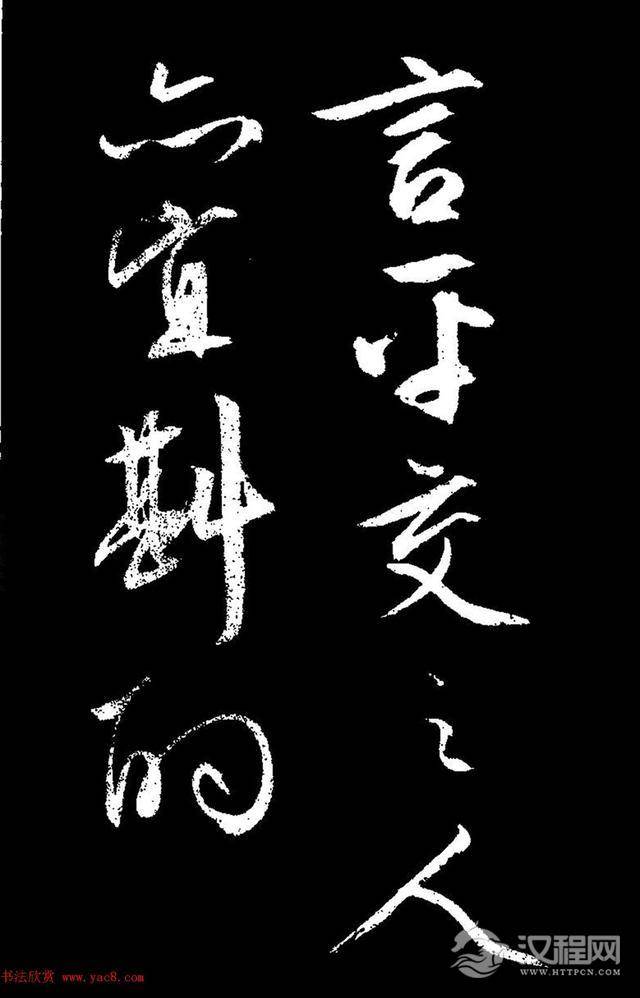 言平交之人
亦宜斟酌
汉程网
WWW.HTTPCN.COM
书法欣赏 www.yac8.com